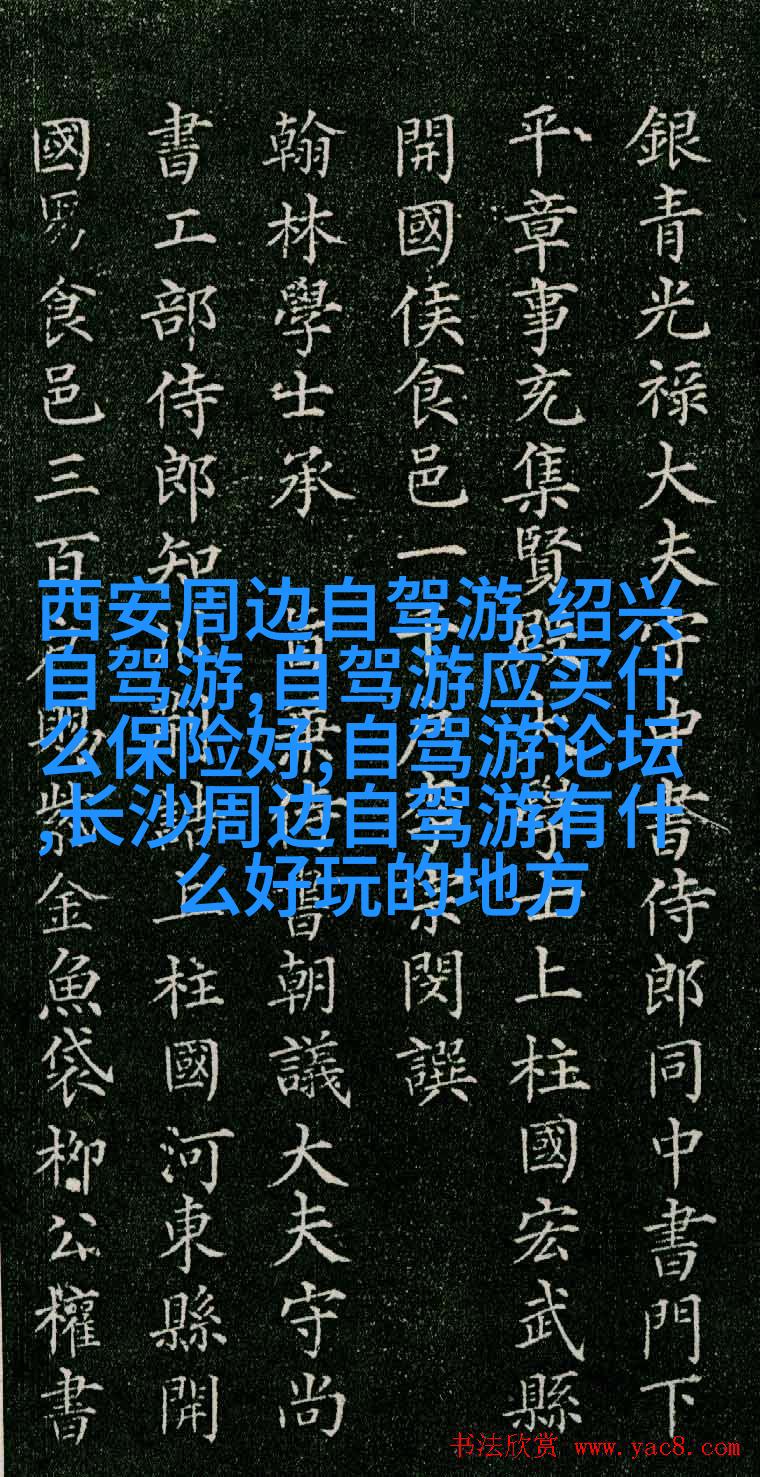 銀青光祿大夫守中書侍郎同中書門下
平章事充集賢殿大學士上柱國宏武縣
開國侯食邑一千戶李宗閔譔
翰林學士承旨兼侍書朝議大夫守尚
書工部侍郎知制誥上柱國河東縣開
國男食邑三百戶賜紫金魚袋柳公權書
西安周边自驾游,绍兴
自驾游,自驾游应买什
么保险好,自驾游论坛
,长沙周边自驾游有什
么好玩的地方
书法欣赏 www.yac8.com